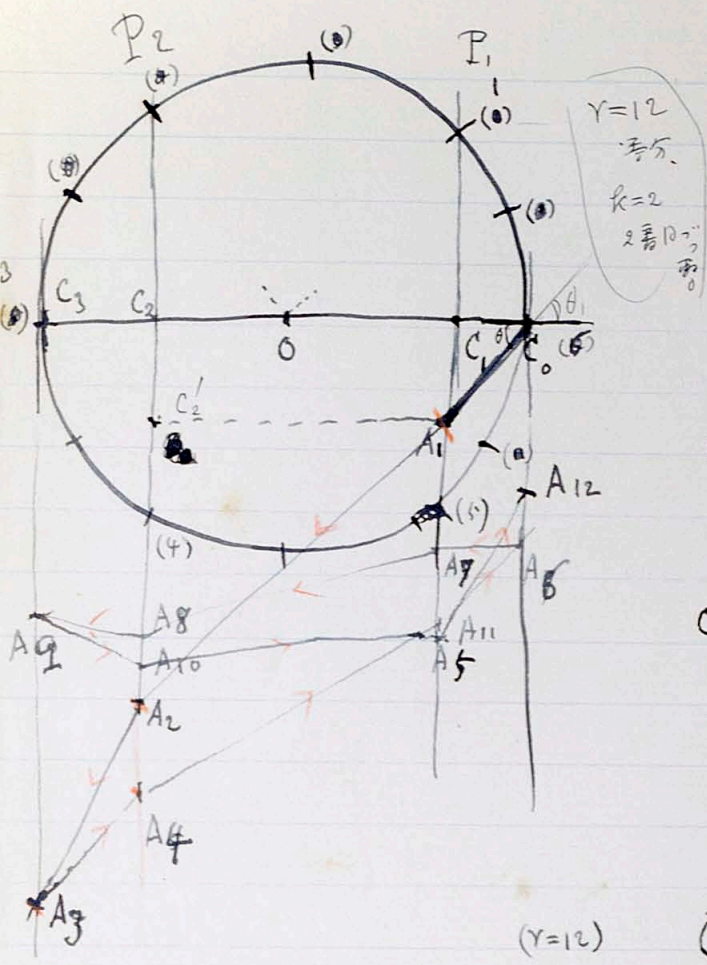 P2
P1
r=12
等分、
k=2
2番目づつ
C3
C2
O
C1
θ
C0
θ1
C2'
A1
A12
(4)
(5)
A7
A6
A8
A9
A10
A11
A5
A2
A4
A3
(r=12)